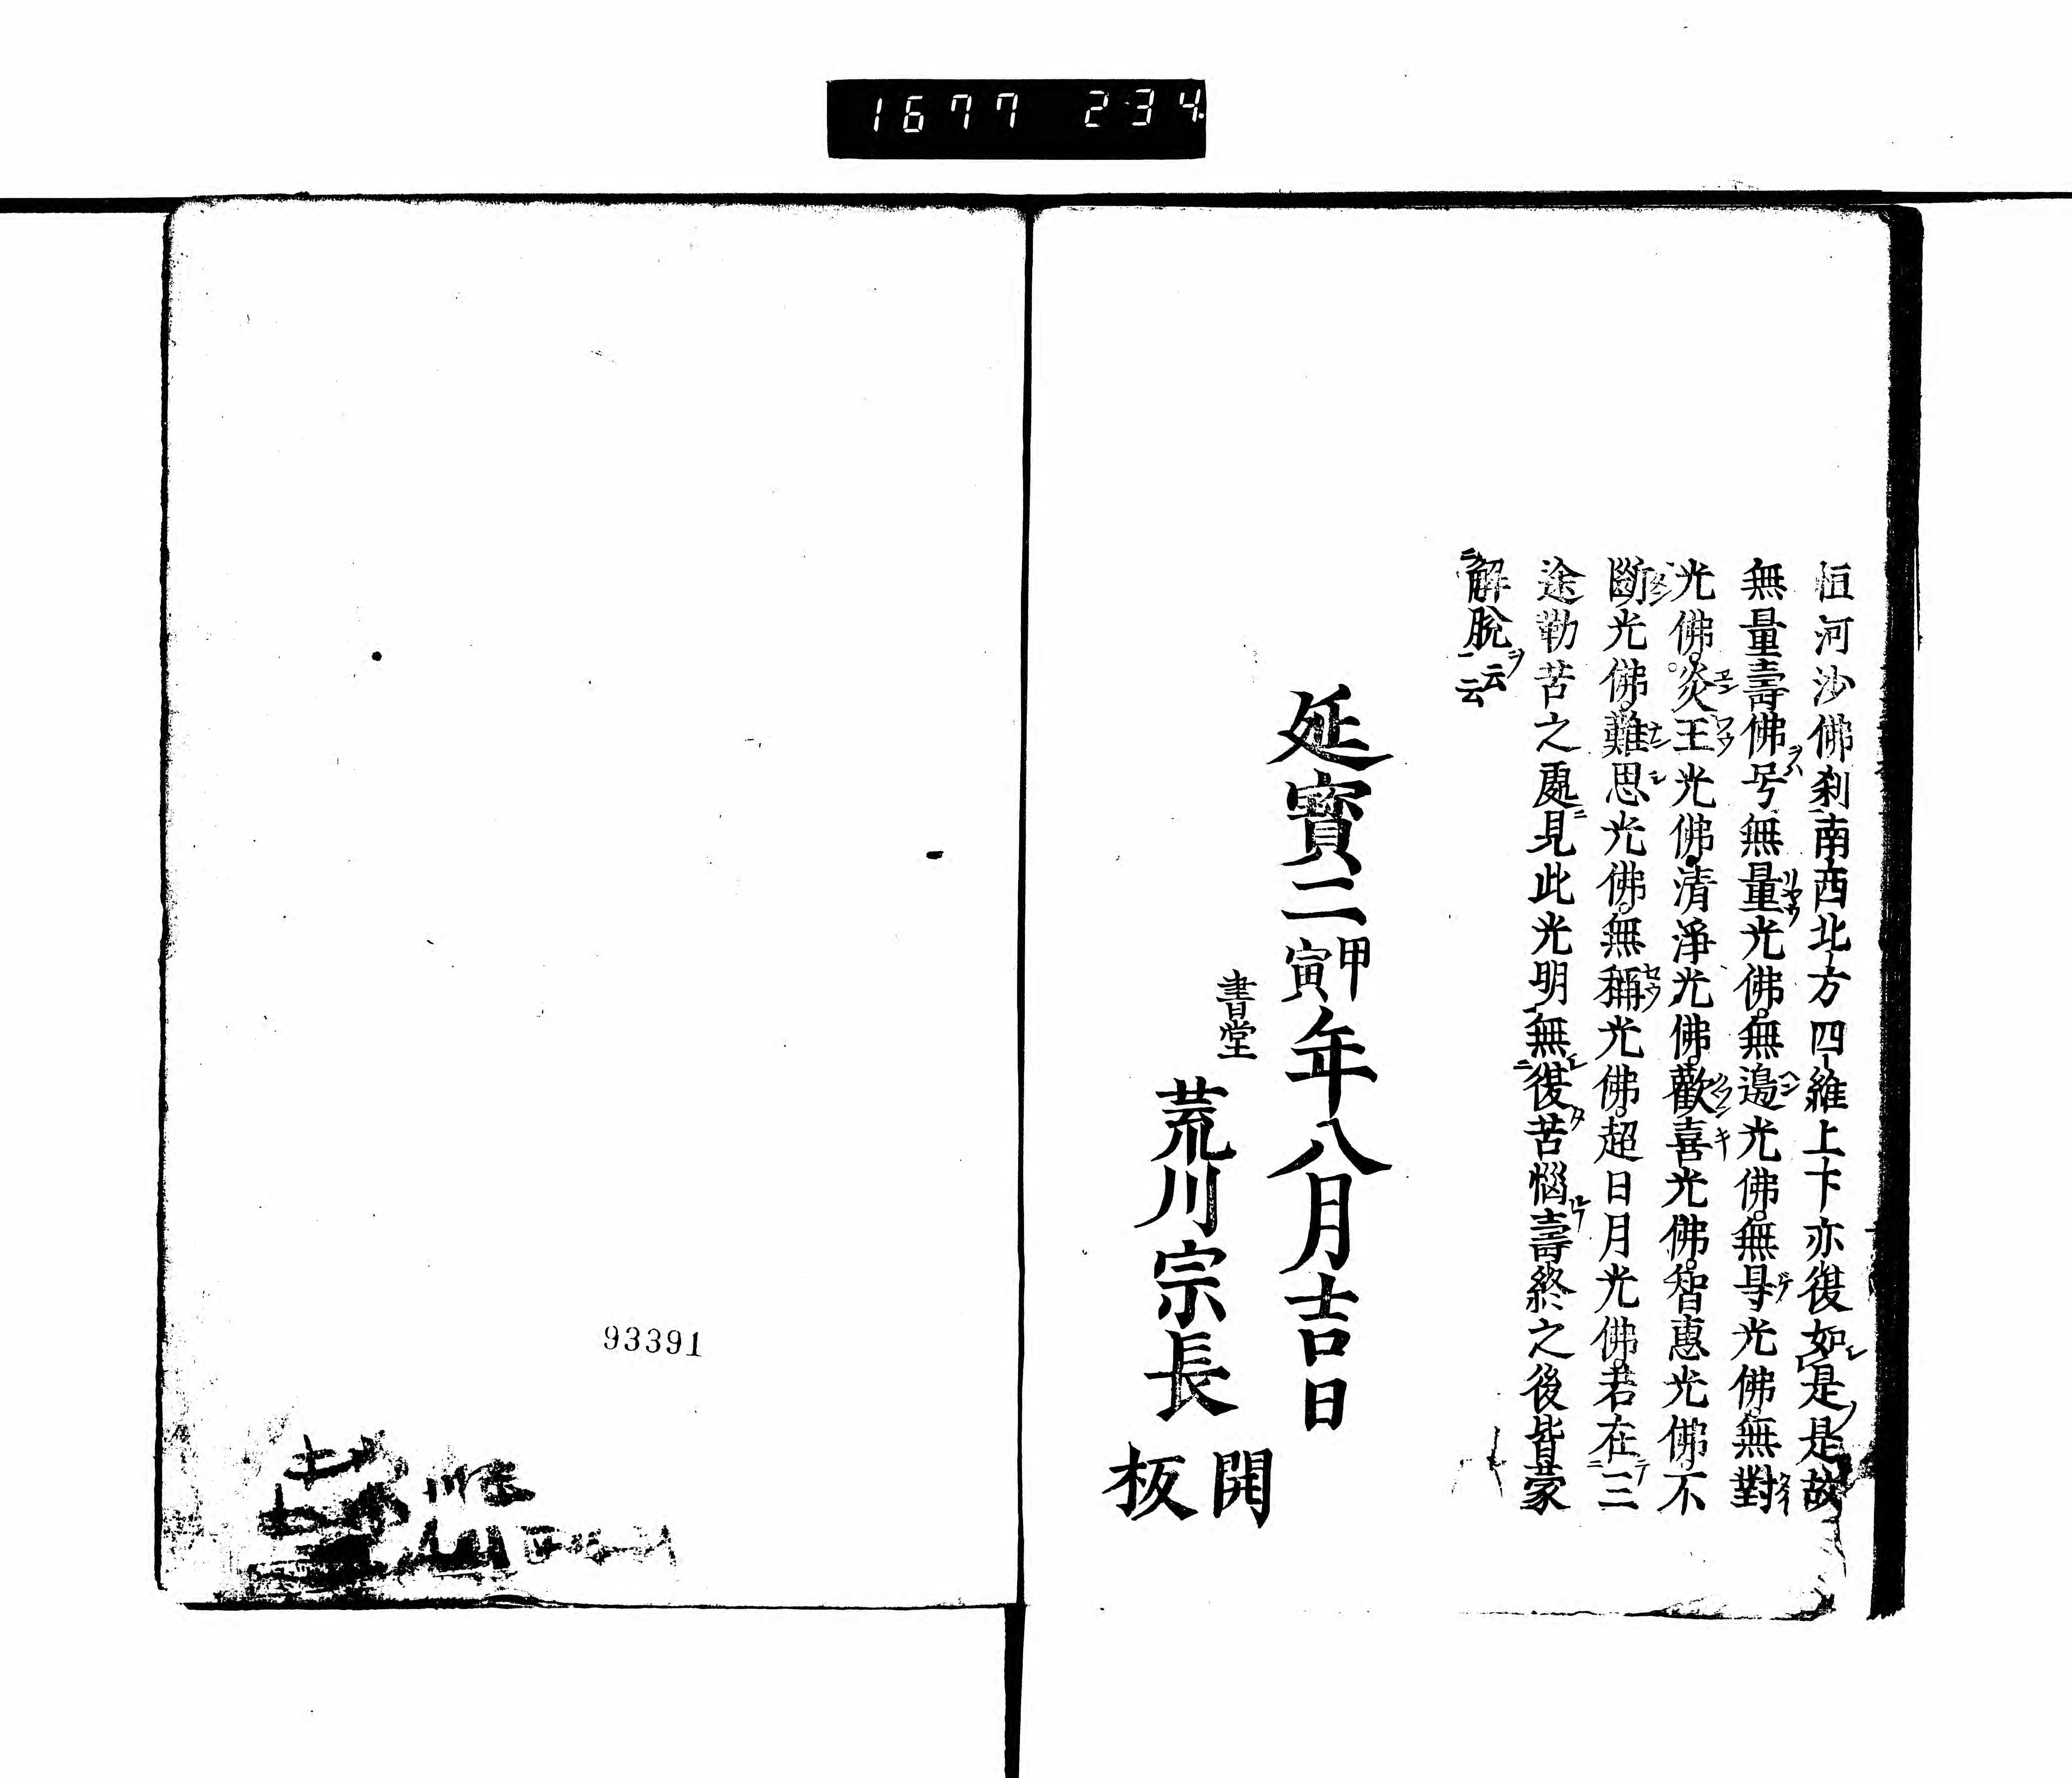 1677 234
恒河沙佛刹南西北方四維上下亦復如是是故
無量壽佛号無量光佛無邊光佛無㝵光佛無對
光佛炎王光佛清淨光佛歡喜光佛智惠光佛不
斷光佛難思光佛無稱光佛超日月光佛若在三
途勤苦之處見此光明無復苦惱壽終之後皆蒙
解脫云云
延寶二甲寅年八月吉日
書堂
荒川宗長
開板
93391